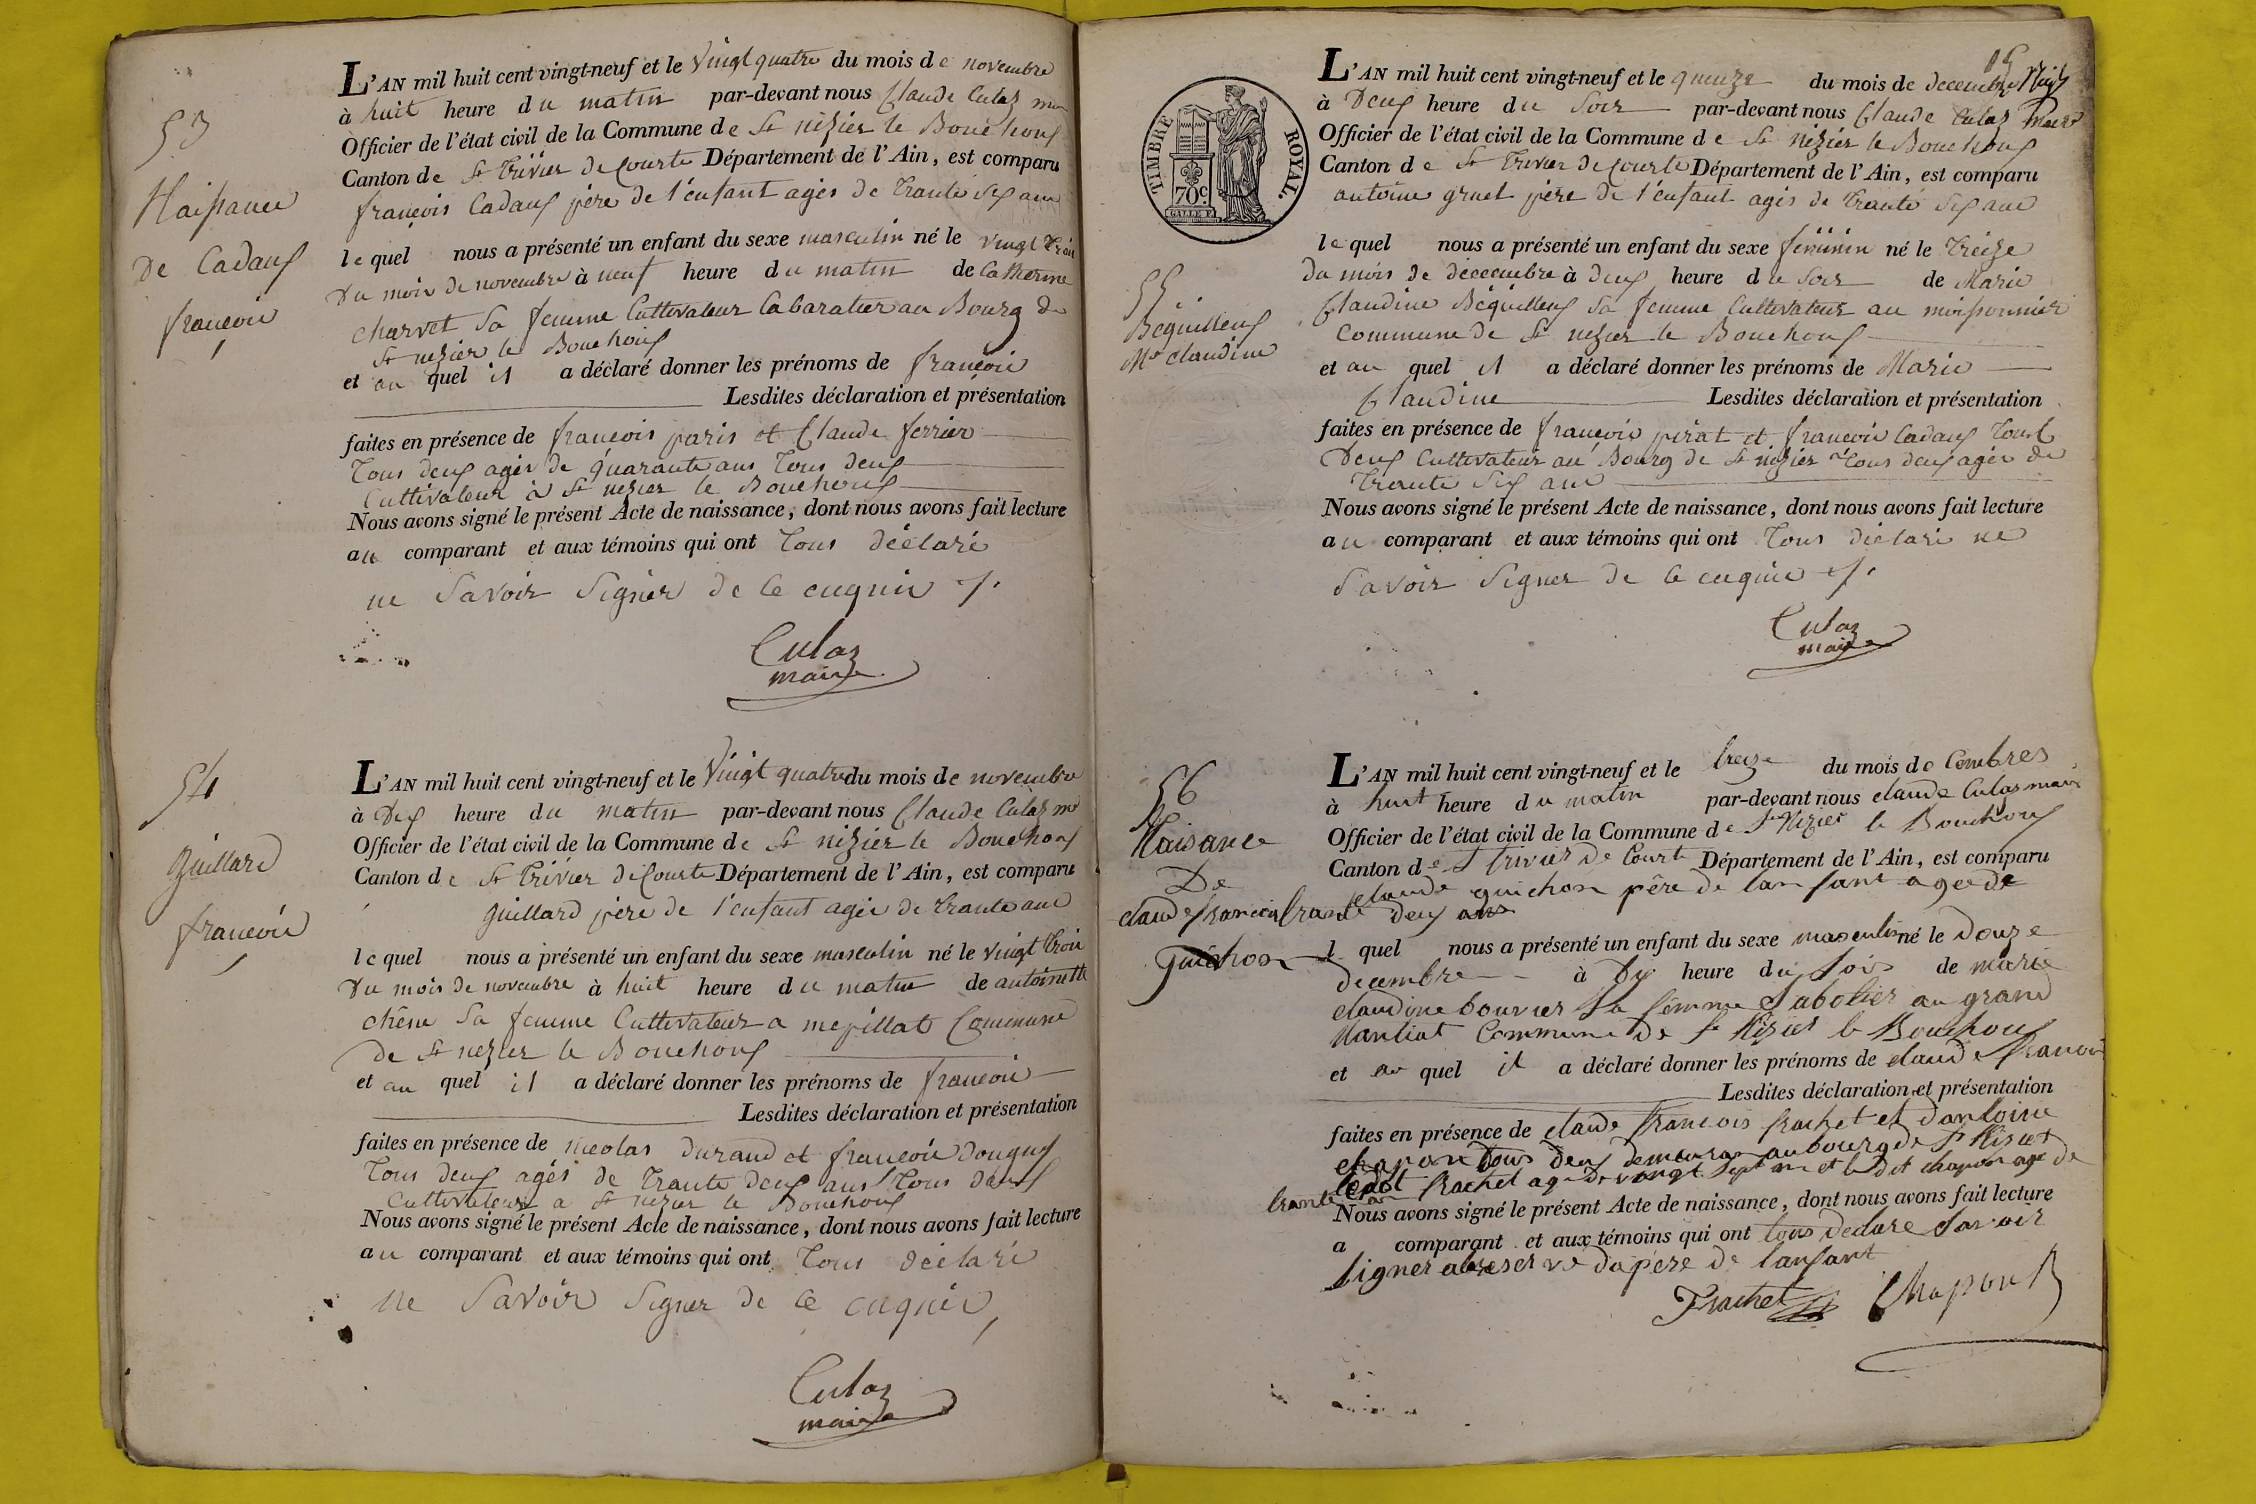 53
Naissance
De Cadoux
françois
L'AN mil huit cent vingt-neuf et le Vingt quatre du mois de novembre
à huit heure du matin par-devant nous Claude Culaz
Officier de l'état civil de la Commune de St nizier le Bouchoux
Canton de St trivier de Courte Département de l'Ain, est comparu
françois Cadoux père de l'enfant agés de trante six ans
lequel nous a présenté un enfant du sexe masculin né le vingt trois
Du mois de novembre à neuf heure du matin de Catherine
charvet Sa femme Cultivateur Cabaratier au Bourg de
St nizier le Bouchoux
et au quel il a déclaré donner les prénoms de françois
Lesdites déclaration et présentation
faites en présence de francois paris et Claude ferrier
Tous deux agés de quarante ans Tous deux
Cultivateur à St nizier le Bouchoux
Nous avons signé le présent Acte de naissance, dont nous avons fait lecture
au comparant et aux témoins qui ont Tous déclaré
ne Savoir Signer de ce enquis
Culaz
maire
54
guillard
françois
L'AN mil huit cent vingt-neuf et le Vingt quatre du mois de novembre
à Dix heure du matin par-devant nous Claude Culaz
Officier de l'état civil de la Commune de St nizier le Bouchoux
Canton de St trivier de Courte Département de l'Ain, est comparu
guillard père de l'enfant agés de trante ans
lequel nous a présenté un enfant du sexe masculin né le vingt trois
Du mois de novembre à huit heure du matin de antoinette
chêne Sa femme Cultivateur a mepillat Commune
de St nizier le Bouchoux
et au quel il a déclaré donner les prénoms de françois
Lesdites déclaration et présentation
faites en présence de nicolas durand et françois
Tous deux agés de trante deux ans Tous deux
Cultivateur a St nizier le Bouchoux
Nous avons signé le présent Acte de naissance, dont nous avons fait lecture
au comparant et aux témoins qui ont Tous déclaré
ne Savoir Signer de ce enquis
Culaz
maire
TIMBRE ROYAL.
70c
55
Béguilleux
Me claudine
L'AN mil huit cent vingt-neuf et le quinze du mois de decembre
à Deux heure du Soir par-devant nous Claude Culaz
Officier de l'état civil de la Commune de St nizier le Bouchoux
Canton de St trivier de Courte Département de l'Ain, est comparu
antoine gruel père de l'enfant agés de trante Six ans
lequel nous a présenté un enfant du sexe féminin né le treize
du mois de dececembre à deux heure du Soir de Marie
Claudine Béguilleux Sa femme Cultivateur au moissonnier
Commune de St nizier le Bouchoux
et au quel il a déclaré donner les prénoms de Marie
Claudine Lesdites déclaration et présentation
faites en présence de françois pirat et françois Cadoux Tous
Deux Cultivateur au Bourg de St nizier Tous deux agés de
trante Six ans
Nous avons signé le présent Acte de naissance, dont nous avons fait lecture
au comparant et aux témoins qui ont Tous déclaré ne
Savoir Signer de ce enquis
Culaz
maire
56
Naisance
De
claude francois
Guichon
L'AN mil huit cent vingt-neuf et le treize du mois de Cembres
à huit heure du matin par-devant nous claude Culas maire
Officier de l'état civil de la Commune de St Nizier le Bouchoux
Canton de St trivier de Courte Département de l'Ain, est comparu
claude guichon père de lanfant age de
trante deux ans
l quel nous a présenté un enfant du sexe masculin né le douze
decembre à dix heure du Soir de marie
claudine bouvier Sa femme Sabotier au grand
Manliat Commune de St Nizier le Bouchoux
et au quel il a déclaré donner les prénoms de claude francois
Lesdites déclaration et présentation
faites en présence de claude francois frachet et dantoine
chapon tous deux demeuran au bourg de St Nizier
ledit frachet age de vingt sept an et le dit chapon age de
trante an
Nous avons signé le présent Acte de naissance, dont nous avons fait lecture
a comparant et aux témoins qui ont tous declare Savoir
Signer abreserve du père de lanfant
Frachet Chapon